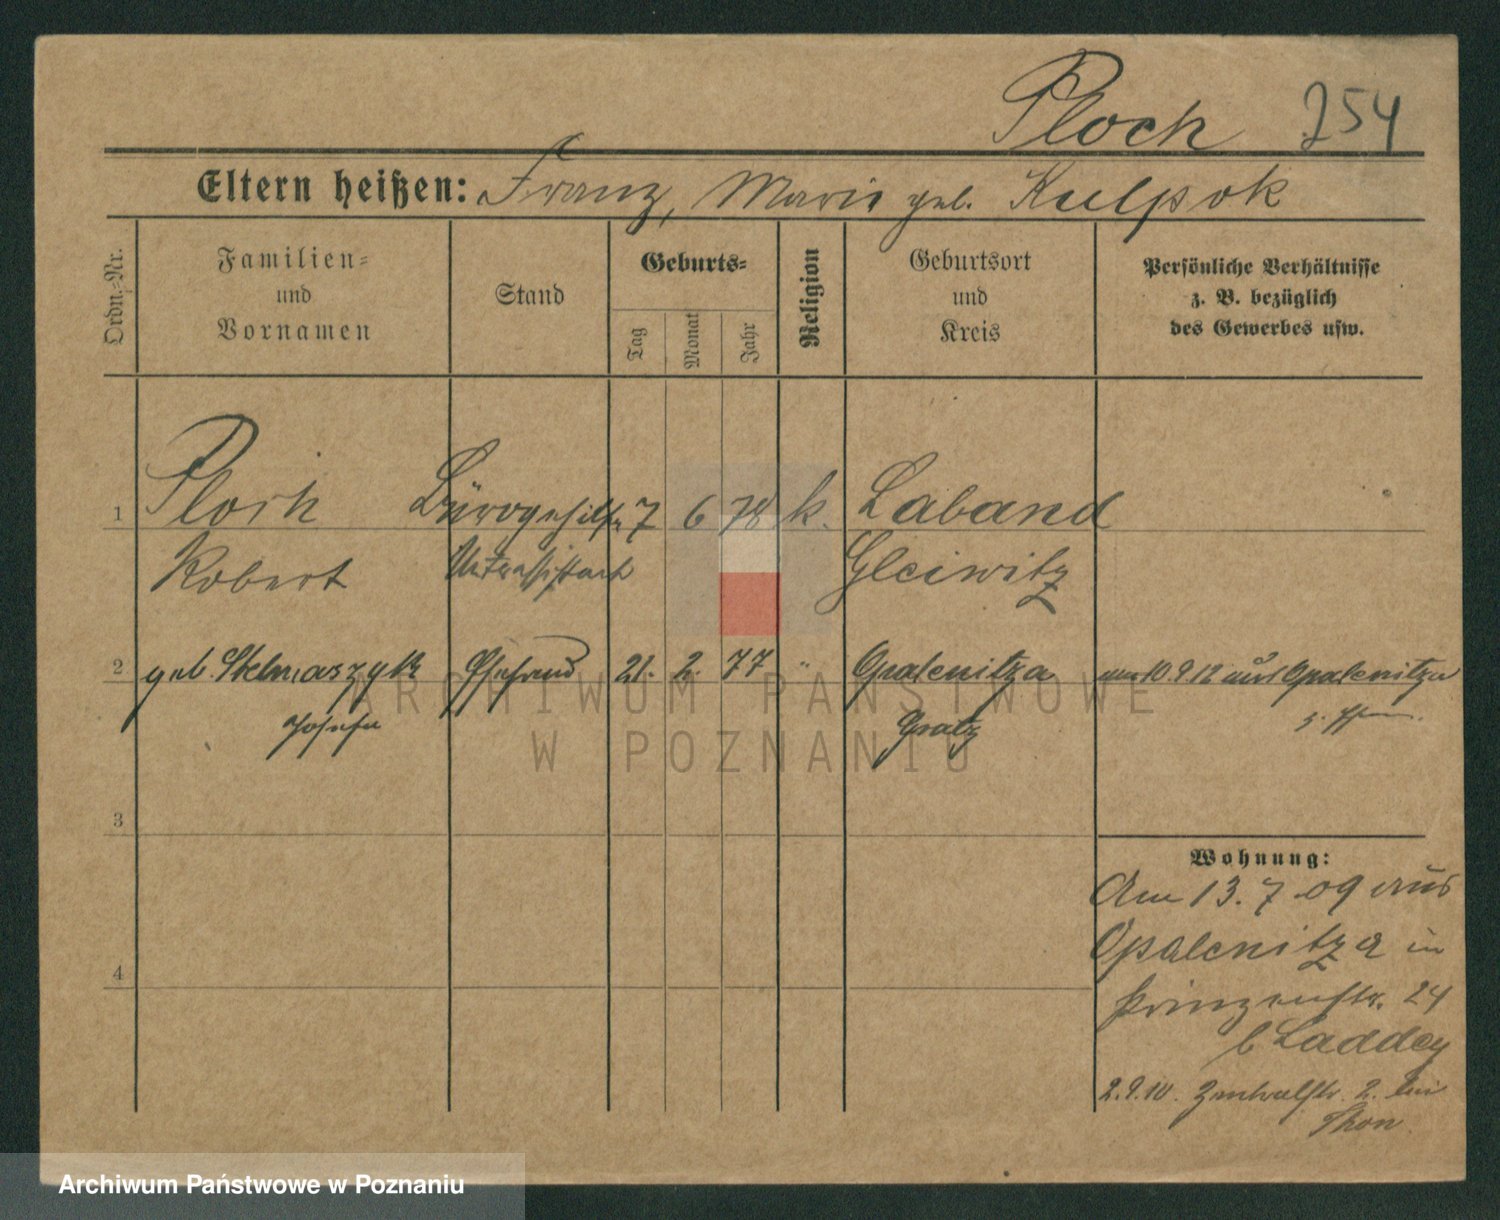 Ploch 254
Eltern heißen: Franz, Marie geb. Kulpok
Ordn.-Nr.
Familien-
und
Vornamen
Stand
Geburts-
Tag
Monat
Jahr
Religion
Geburtsort
und
Kreis
Persönliche Verhältnisse
z. B. bezüglich
des Gewerbes usw.
1 Ploch Bürogehilfe 7 6 78 k. Laband
Robert Gleiwitz
2 geb. Stelmaszyk Ehefrau 21. 2. 77 " Opalenitza am 10.9.12 aus Opalenitza
Josefa Grätz
3
4
Wohnung:
Am 13.7.09 aus
Opalenitza in
Prinzenstr. 24
b Laddey
2.9.10. Zentralstr. 2. bei
Thon
ARCHIWUM PAŃSTWOWE
W POZNANIU
Archiwum Państwowe w Poznaniu